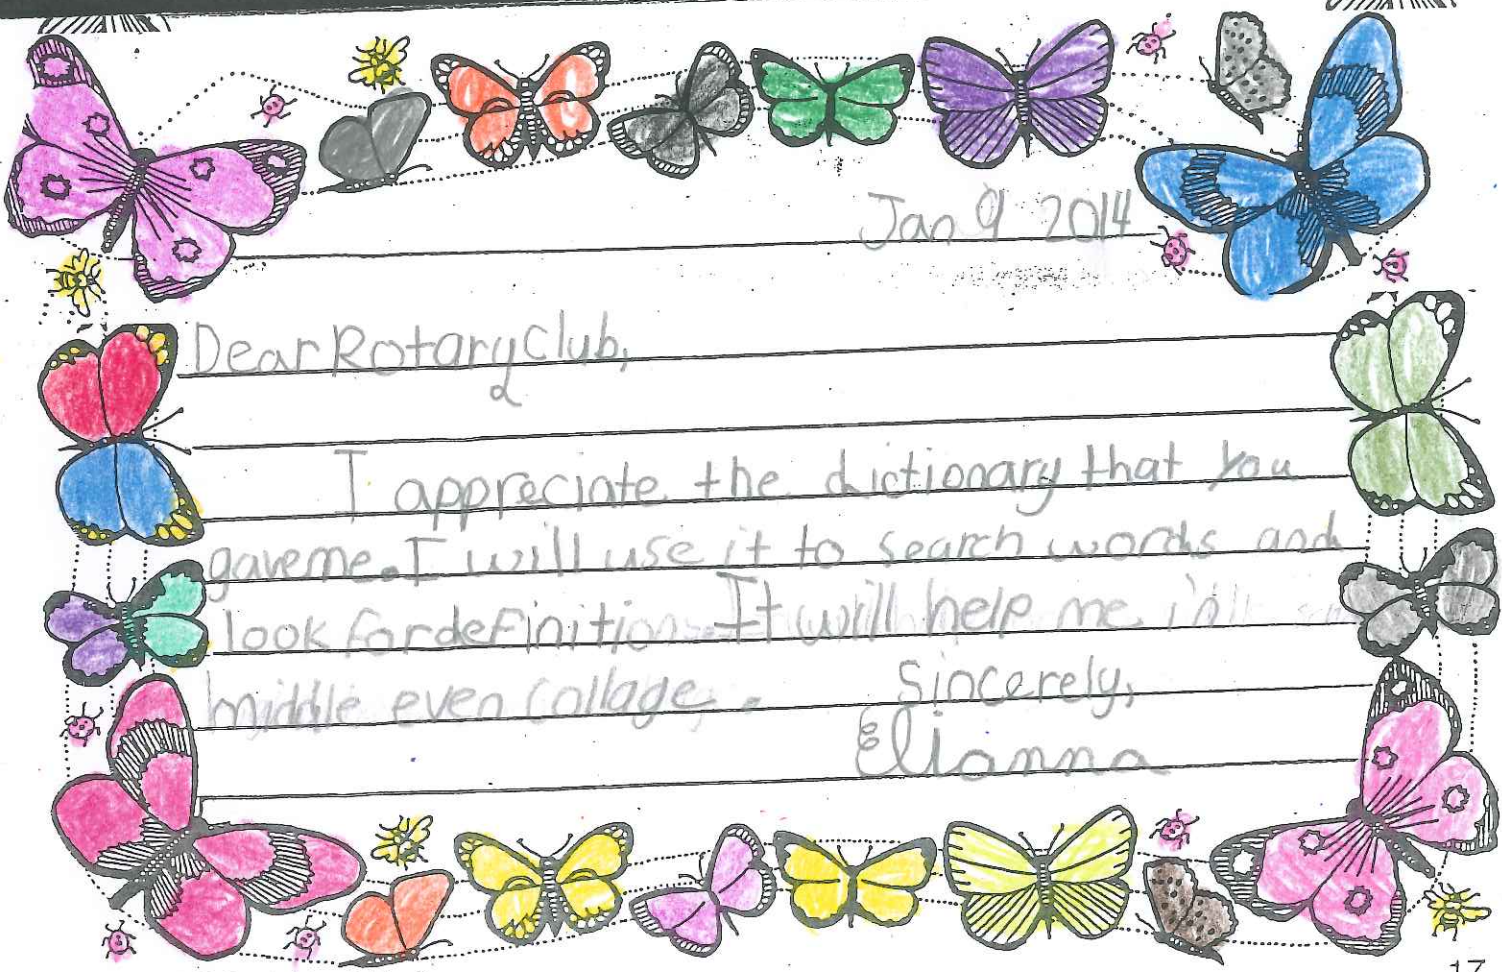 Jan 9 2014
Dear Rotary Club,
I appreciate the dictionary that you
gave me. I will use it to search words and
look for definition It will help me in
middle even collage.
Sincerely,
Elianna
17